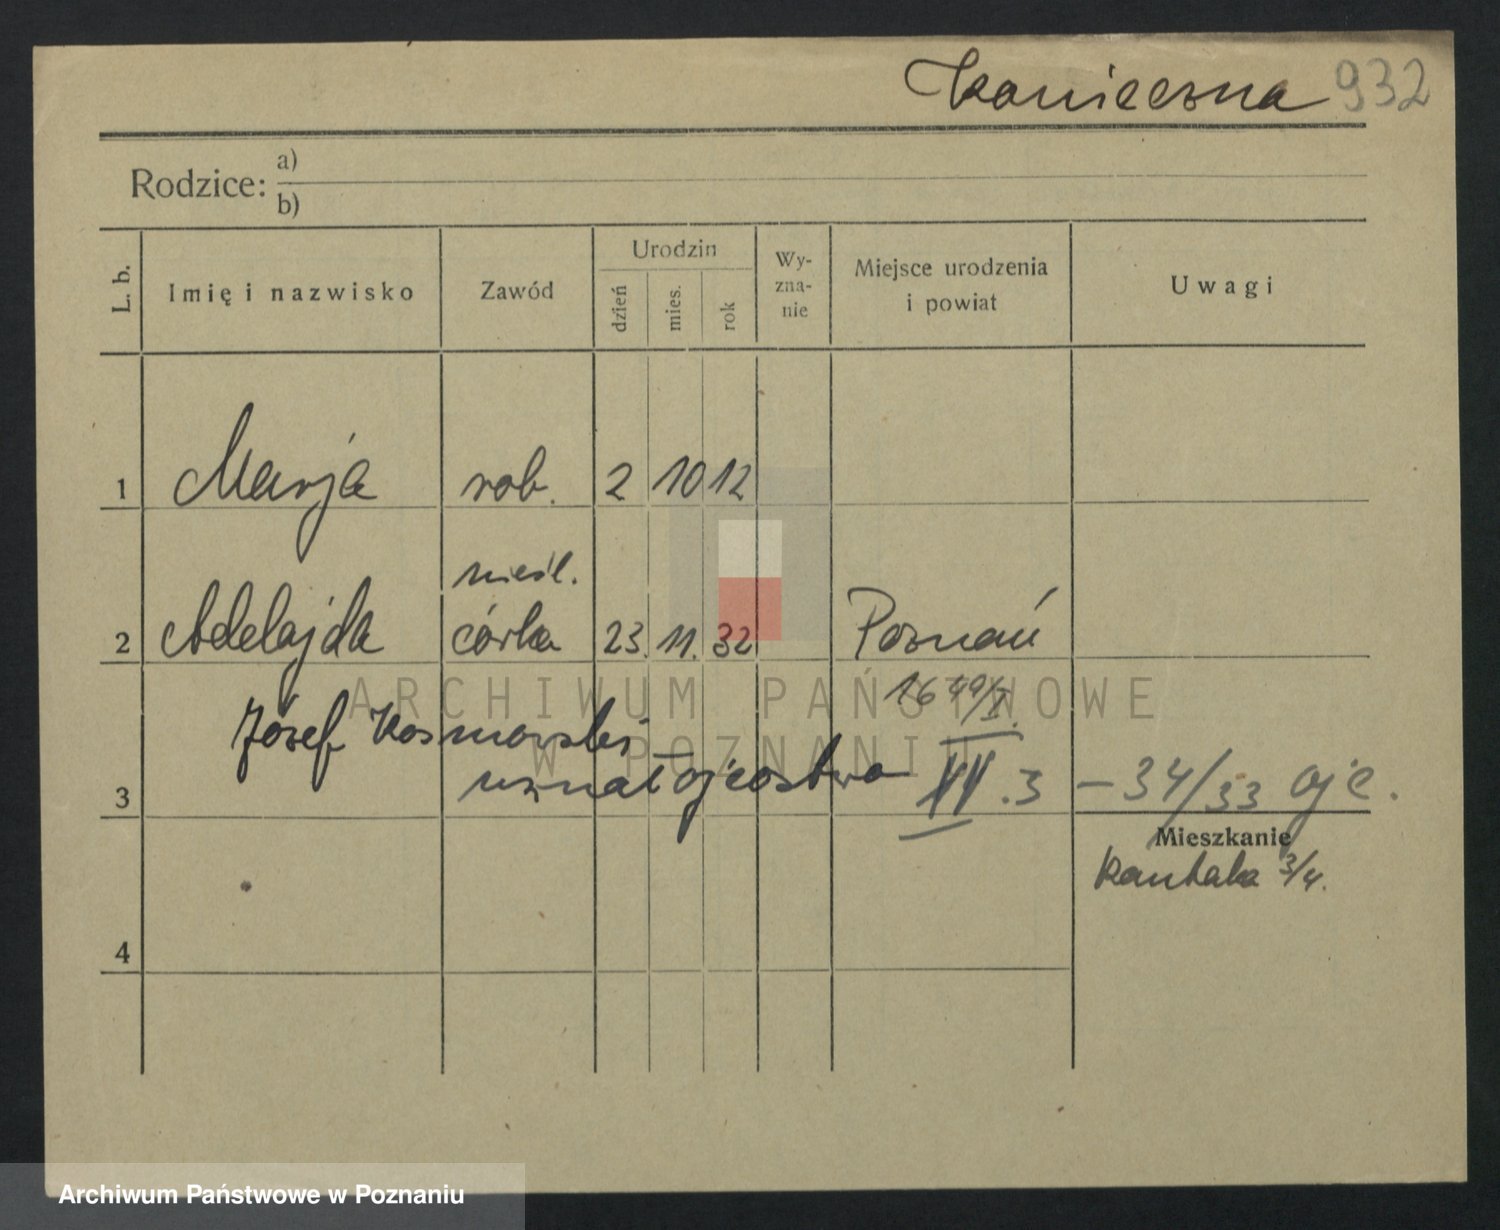 Konieczna 932
Rodzice: a)
b)
L. b.
Imię i nazwisko
Zawód
Urodzin
dzień
mies.
rok
Wy-
zna-
nie
Miejsce urodzenia
i powiat
Uwagi
1 Marja rob. 2 10 12
nieśl.
2 Adelajda córka 23. 11. 32 Poznań
1649/I.
Józef Kosmowski
uznał ojcostwo
3 .3 – 34/33 ojc.
Mieszkanie
Kantaka 3/4.
4
ARCHIWUM PAŃSTWOWE
W POZNANIU
Archiwum Państwowe w Poznaniu